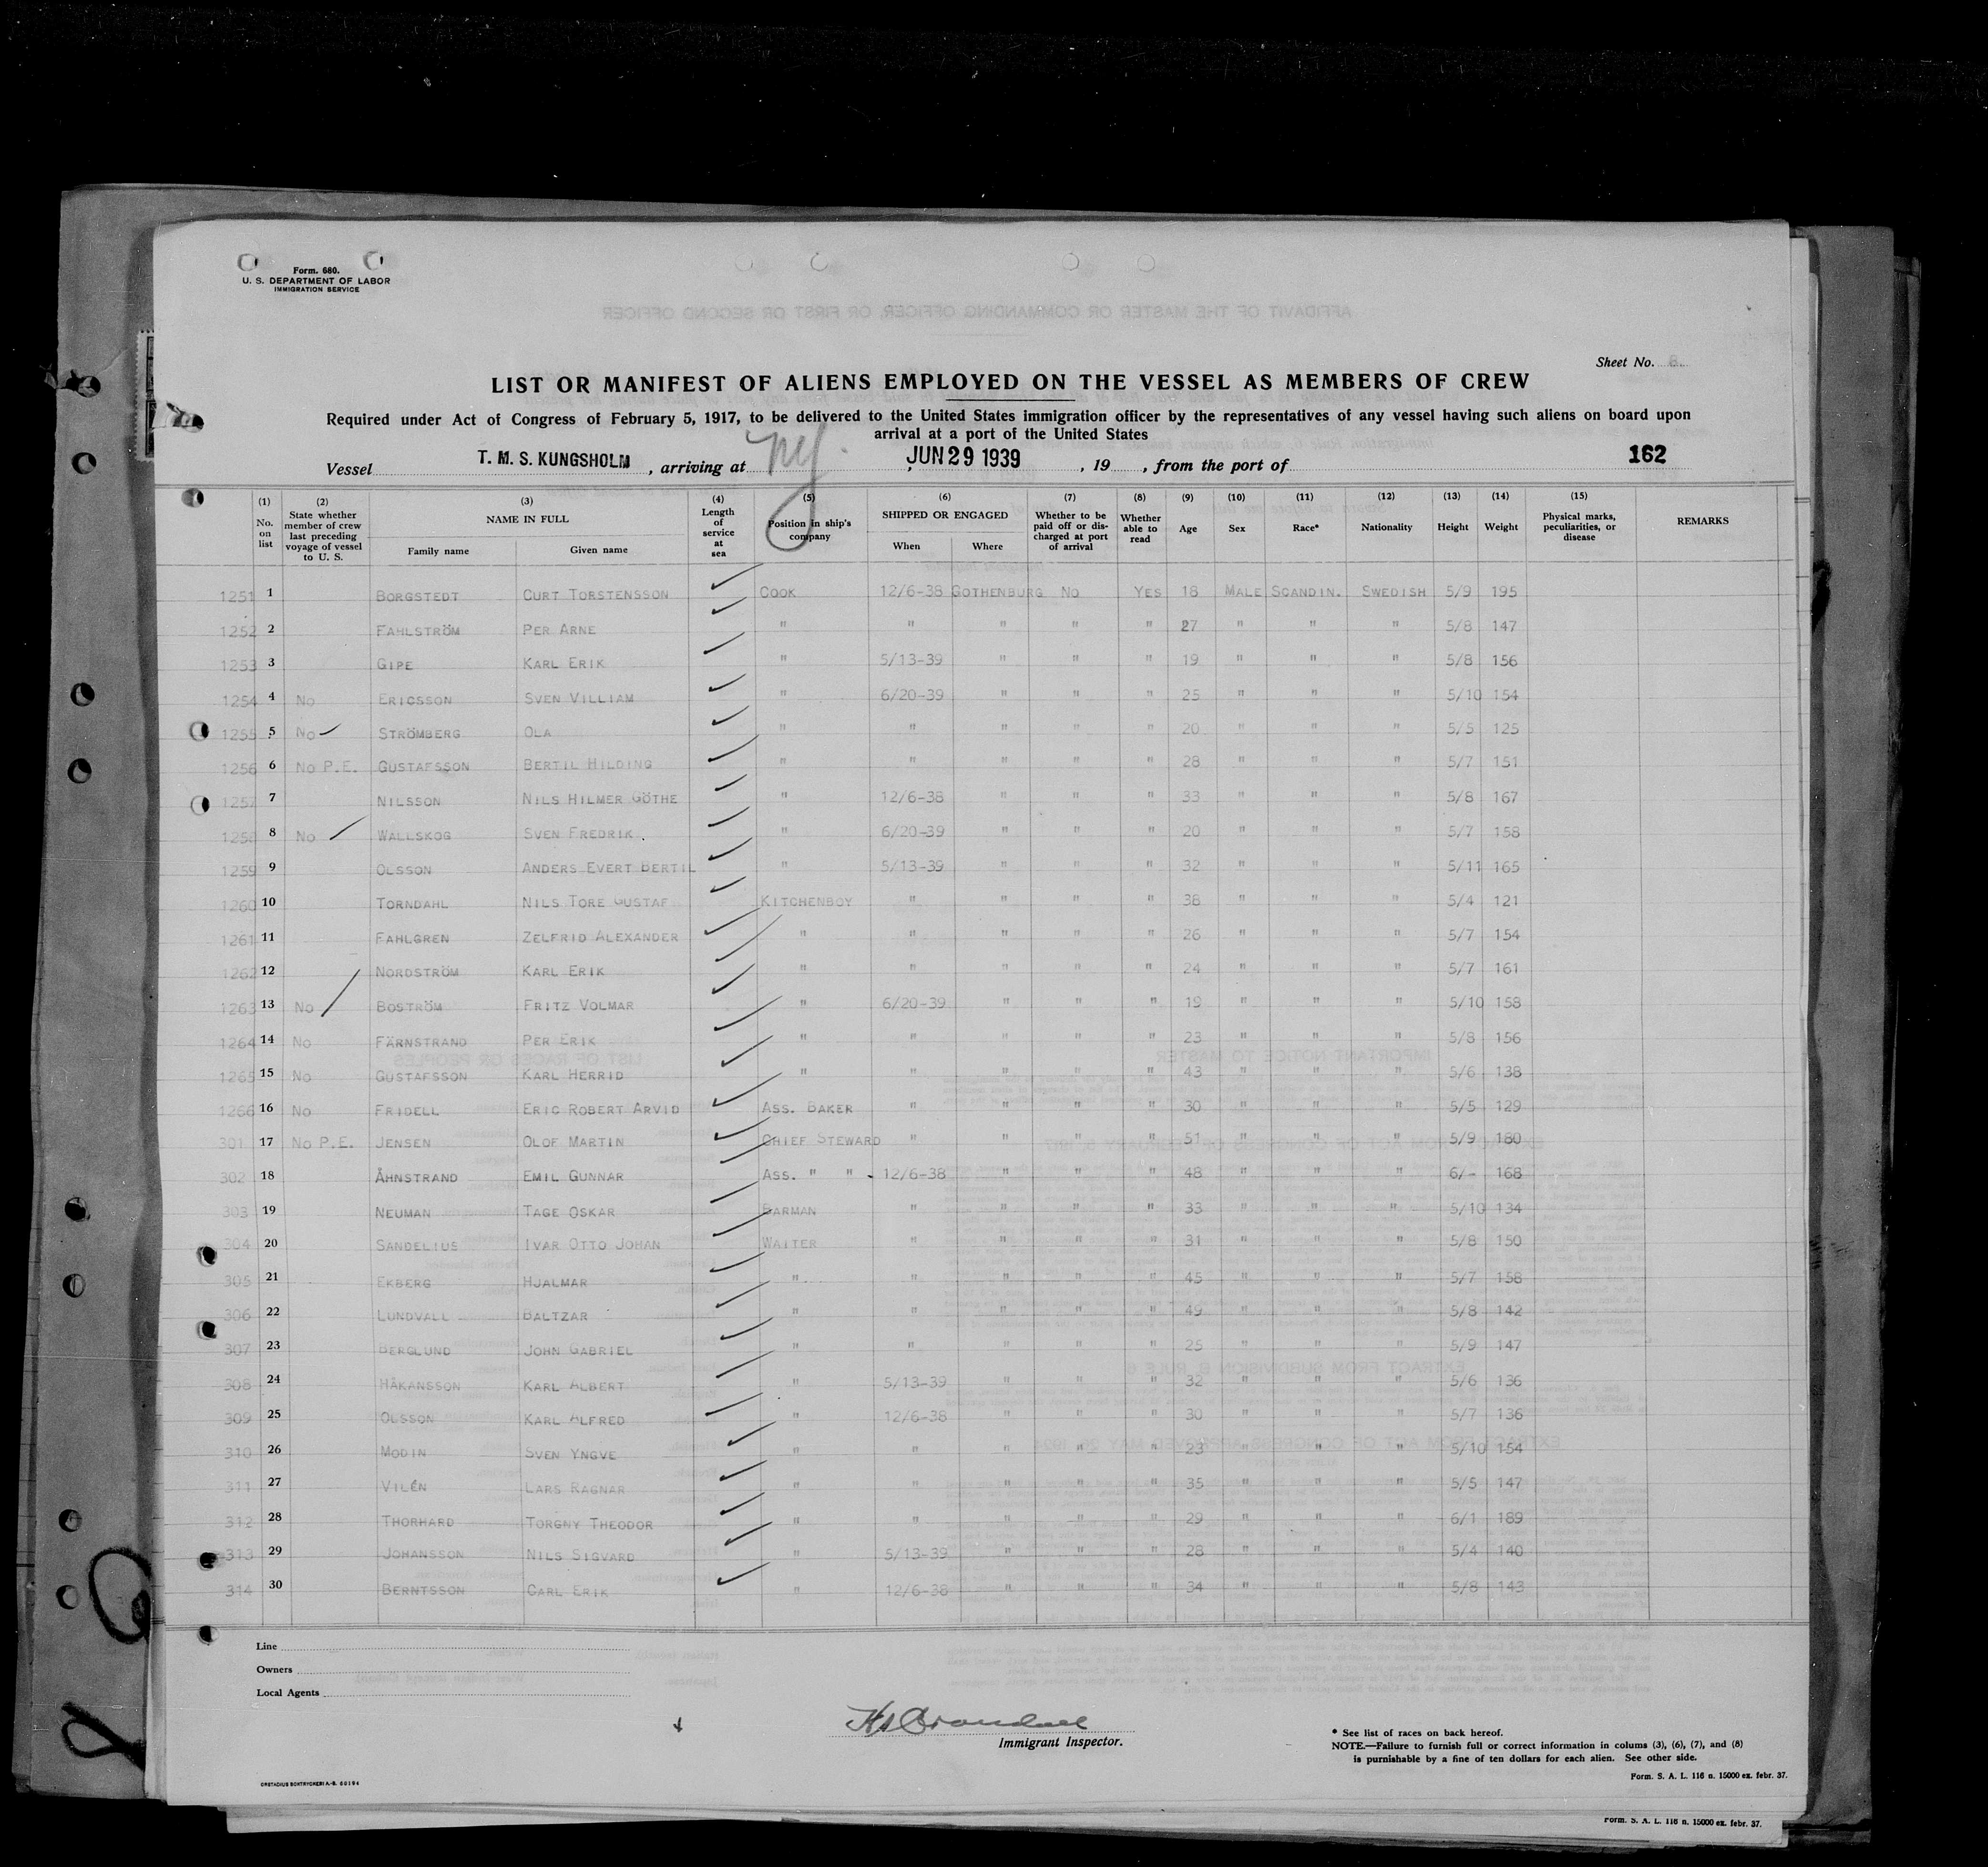 Form. 680.
U. S. DEPARTMENT OF LABOR
IMMIGRATION SERVICE
AFFIDAVIT OF THE MASTER OR COMMANDING OFFICER, OR FIRST OR SECOND OFFICER
Sheet No. 8
LIST OR MANIFEST OF ALIENS EMPLOYED ON THE VESSEL AS MEMBERS OF CREW
Required under Act of Congress of February 5, 1917, to be delivered to the United States immigration officer by the representatives of any vessel having such aliens on board upon
arrival at a port of the United States
Vessel T. M. S. KUNGSHOLM, arriving at NY. JUN 29 1939, 19 , from the port of 162
(1) No. on list (2) State whether member of crew last preceding voyage of vessel to U. S. (3) NAME IN FULL Family name Given name (4) Length of service at sea (5) Position in ship's company (6) SHIPPED OR ENGAGED When Where (7) Whether to be paid off or discharged at port of arrival (8) Whether able to read (9) Age (10) Sex (11) Race* (12) Nationality (13) Height (14) Weight (15) Physical marks, peculiarities, or disease REMARKS
1251 1 BORGSTEDT CURT TORSTENSSON COOK 12/6-38 GOTHENBURG NO YES 18 MALE SCANDIN. SWEDISH 5/9 195
1252 2 FAHLSTRÖM PER ARNE " " " " " 27 " " " 5/8 147
1253 3 GIPE KARL ERIK " 5/13-39 " " " 19 " " " 5/8 156
1254 4 NO ERICSSON SVEN VILLIAM " 6/20-39 " " " 25 " " " 5/10 154
1255 5 NO STRÖMBERG OLA " " " " " 20 " " " 5/5 125
1256 6 NO P.E. GUSTAFSSON BERTIL HILDING " " " " " 28 " " " 5/7 151
1257 7 NILSSON NILS HILMER GÖTHE " 12/6-38 " " " 33 " " " 5/8 167
1258 8 NO WALLSKOG SVEN FREDRIK " 6/20-39 " " " 20 " " " 5/7 158
1259 9 OLSSON ANDERS EVERT BERTIL " 5/13-39 " " " 32 " " " 5/11 165
1260 10 TORNDAHL NILS TORE GUSTAF KITCHENBOY " " " " 38 " " " 5/4 121
1261 11 FAHLGREN ZELFRID ALEXANDER " " " " " 26 " " " 5/7 154
1262 12 NORDSTRÖM KARL ERIK " " " " " 24 " " " 5/7 161
1263 13 NO BOSTRÖM FRITZ VOLMAR " 6/20-39 " " " 19 " " " 5/10 158
1264 14 NO FÄRNSTRAND PER ERIK " " " " " 23 " " " 5/8 156
1265 15 NO GUSTAFSSON KARL HERRID " " " " " 43 " " " 5/6 138
1266 16 NO FRIDELL ERIC ROBERT ARVID ASS. BAKER " " " " 30 " " " 5/5 129
301 17 NO P.E. JENSEN OLOF MARTIN CHIEF STEWARD " " " " 51 " " " 5/9 180
302 18 ÅHNSTRAND EMIL GUNNAR ASS. " " 12/6-38 " " " 48 " " " 6/- 168
303 19 NEUMAN TAGE OSKAR BARMAN " " " " 33 " " " 5/10 134
304 20 SANDELIUS IVAR OTTO JOHAN WAITER " " " " 31 " " " 5/8 150
305 21 EKBERG HJALMAR " " " " " 45 " " " 5/7 158
306 22 LUNDVALL BALTZAR " " " " " 49 " " " 5/8 142
307 23 BERGLUND JOHN GABRIEL " " " " " 25 " " " 5/9 147
308 24 HÅKANSSON KARL ALBERT " 5/13-39 " " " 32 " " " 5/6 136
309 25 OLSSON KARL ALFRED " 12/6-38 " " " 30 " " " 5/7 136
310 26 MODIN SVEN YNGVE " " " " " 23 " " " 5/10 154
311 27 VILÉN LARS RAGNAR " " " " " 35 " " " 5/5 147
312 28 THORHARD TORGNY THEODOR " " " " " 29 " " " 6/1 189
313 29 JOHANSSON NILS SIGVARD " 5/13-39 " " " 28 " " " 5/4 140
314 30 BERNTSSON CARL ERIK " 12/6-38 " " " 34 " " " 5/8 143
Line
Owners
Local Agents
Immigrant Inspector.
* See list of races on back hereof.
NOTE.—Failure to furnish full or correct information in colums (3), (6), (7), and (8)
is purnishable by a fine of ten dollars for each alien. See other side.
Form. S. A. L. 116 n. 15000 ex. febr. 37.
Form. S. A. L. 116 n. 15000 ex. febr. 37.